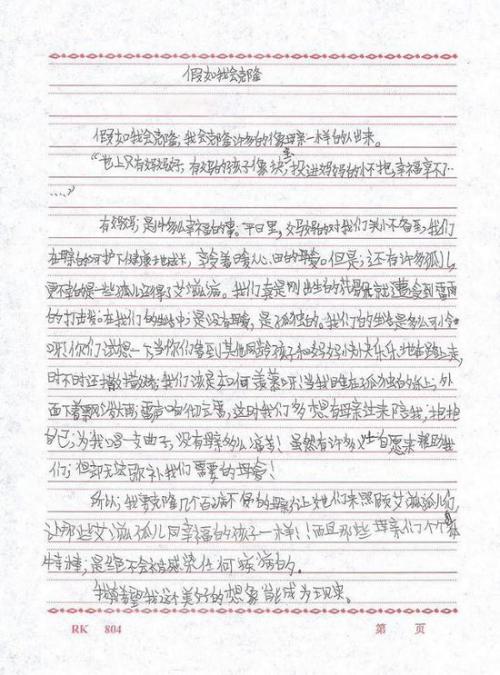 假如我会克隆
假如我会克隆,我会克隆许多的像母亲一样的人出来。
“世上只有妈妈好,有妈的孩子像块宝,投进妈妈的怀抱,幸福享不了
……”
有妈妈,是多么幸福的事。平日里,妈妈的对我们关心不备至,我们
在母亲的呵护下健康地成长,享受着暖人心田的母爱。但是,还有许多孤儿,
更不幸的是一些孤儿还得了艾滋病。我们真是刚出生的花骨朵就遭受到雷雨
的打击。在我们的生活中,是没有母爱,是孤独的。我们的生活是多么可怜
呀!你们试想一下当你们看到其他同龄孩子和妈妈快快乐乐地走在路上,
时不时还撒撒娇,我们该是如何羡慕呀!当我自坐在孤独的纸上,外
面下着大雨,雷声响彻云霄,这时我们多想有母亲过来陪我,抱抱
自己,为我唱一支曲子,没有母亲多么痛苦!虽然有许多人自愿来帮助我
们,但却无法弥补我们需要的母爱!
所以,我要克隆几个百病不侵的母亲,让她们来照顾艾滋孤儿们,
让那些艾滋孤儿同幸福的孩子一样!而且那些母亲们个个身体
棒棒,是绝不会被感染任何疾病的。
我希望我这个美好的想象能成为现实。
RK 804
第 页